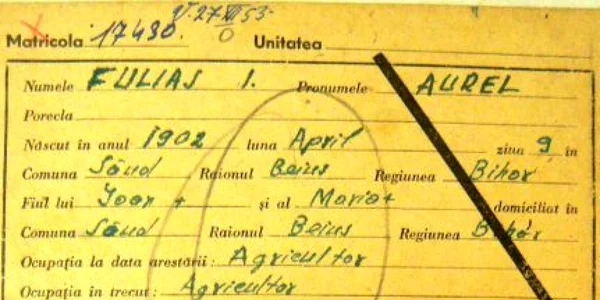 V. 27 XII 53
Matricola 17430. Unitatea
Numele FULIAS I. Pronumele AUREL
Porecla
Născut în anul 1902 luna April ziua 9 în
Comuna Sâud Raionul Beius Regiunea Bihor
Fiul lui Ioan + și al Maria + domiciliat în
Comuna Sâud Raionul Beius Regiunea Bihor
Ocupația la data arestării: Agricultor
Ocupația în trecut: Agricultor